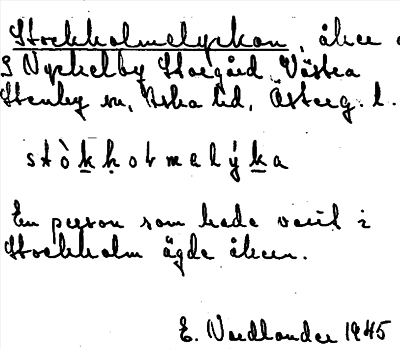 Stockholmslyckan, åker
S Nyckelby Storgård Västra
Stenby sn, Aska hd, Österg. l.
stòkholmslýka
En person som hade varit i
Stockholm ägde åkern.
E. Nordlander 1945